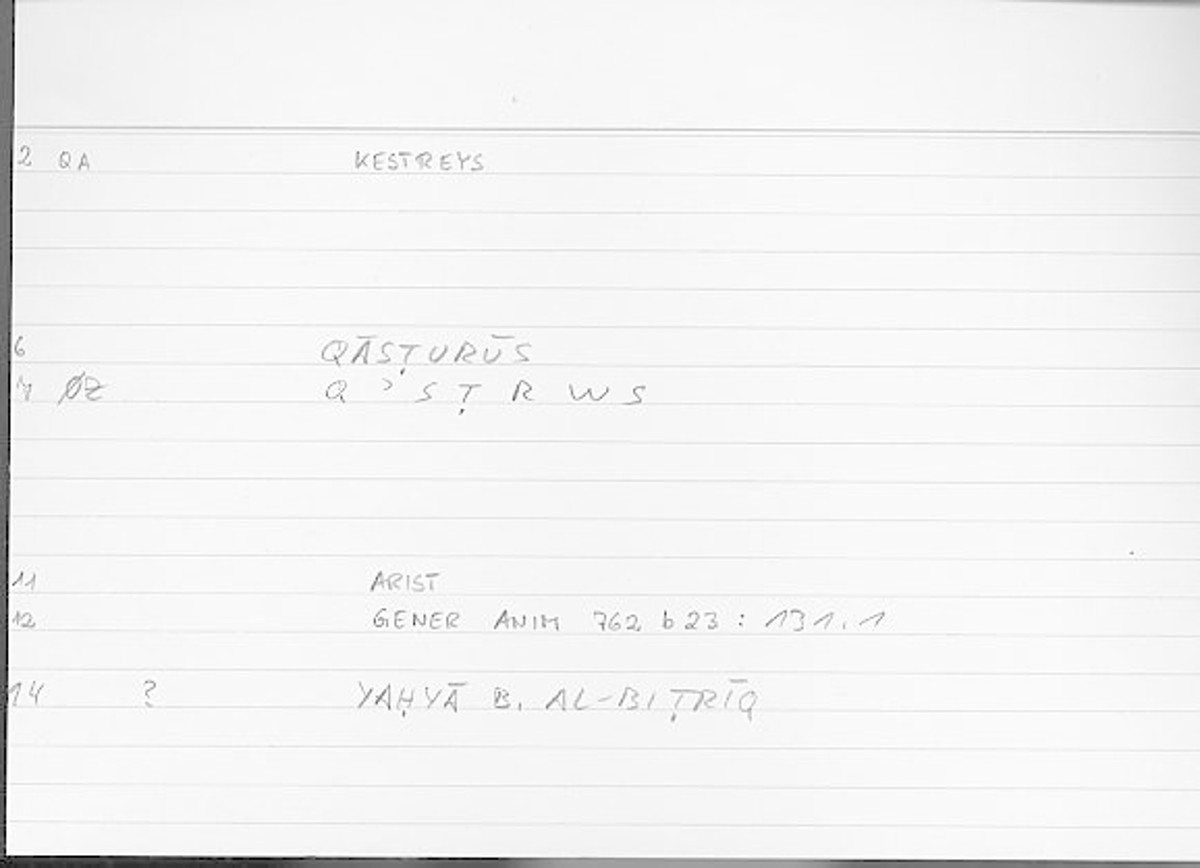 2 QA KESTREYS
6 QĀSṬURŪS
7 ØZ Q ʾ S Ṭ R W S
11 ARIST
12 GENER ANIM 762 b 23 : 131.1
14 ? YAḤYĀ B. AL-BIṬRĪQ